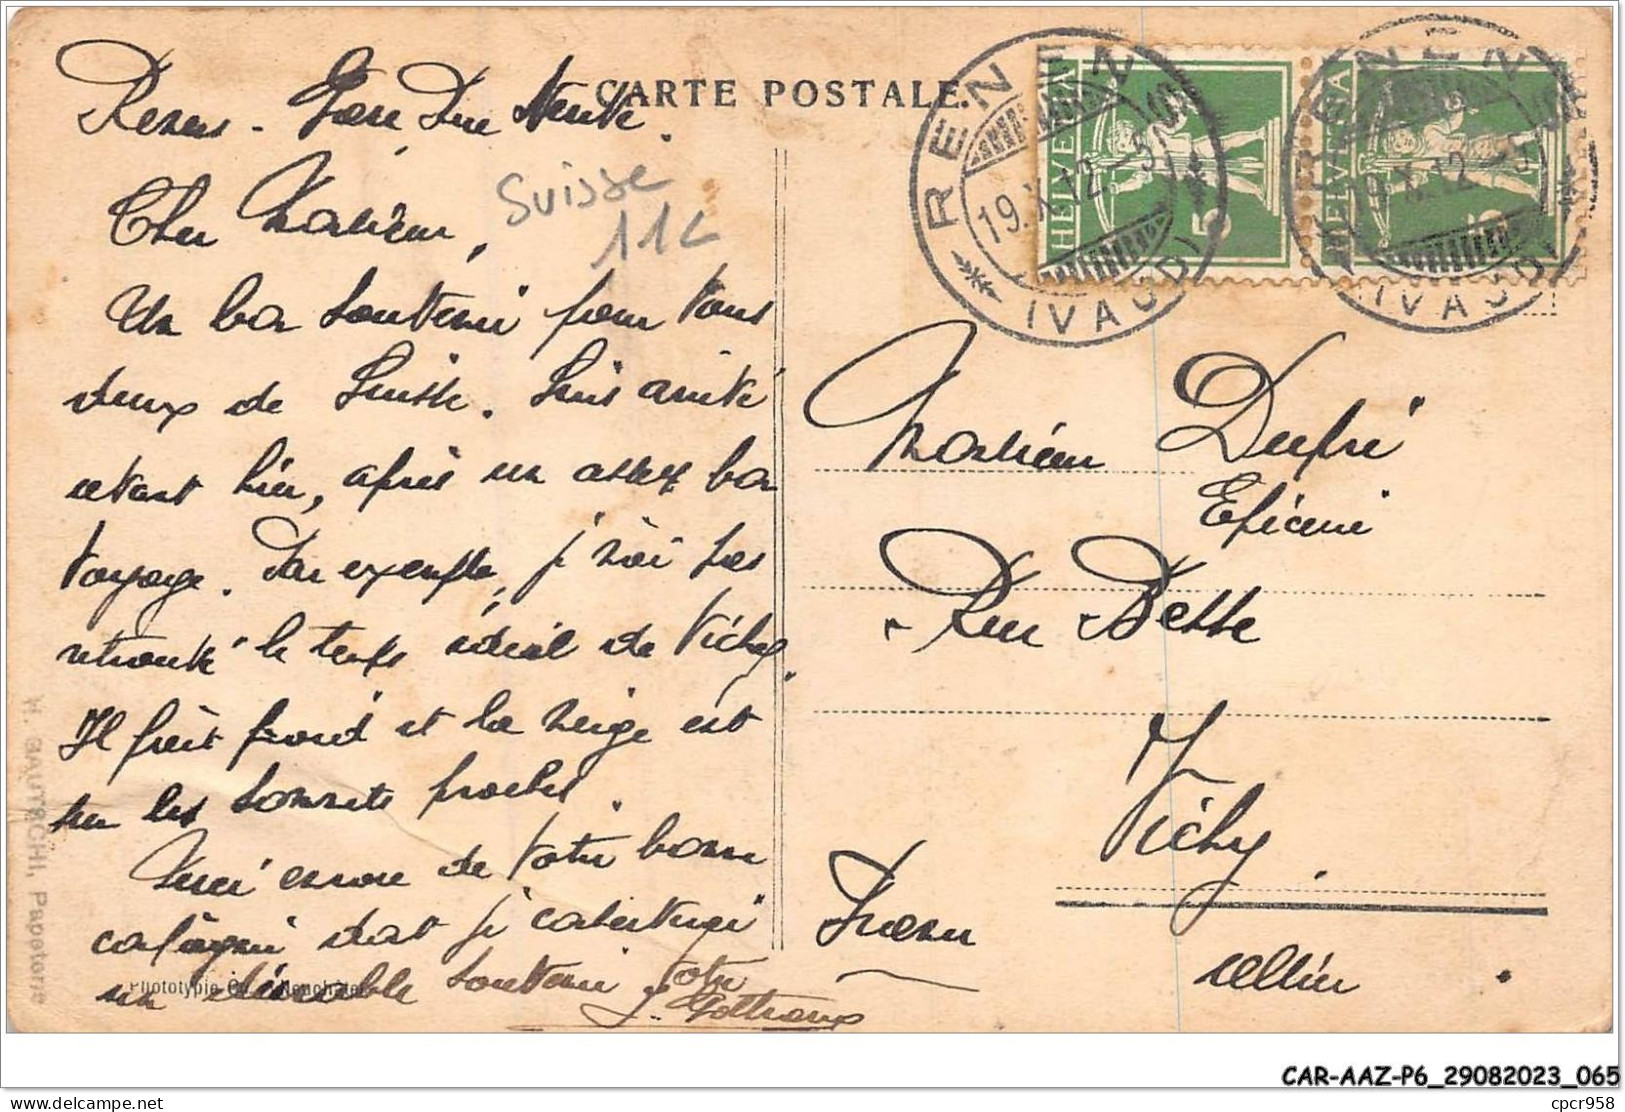 CARTE POSTALE.
Renens - Gare Rue Neuve.
Suisse
11c
Cher Monsieur,
Un bon souvenir pour vous
deux de Suisse. Suis arrivé
avant hier, après un assez bon
voyage. Par exemple, j'n'ai pas
retrouvé le temps idéal de Vichy.
Il fait froid et la neige est
sur les sommets proches.
Merci encore de votre bonne
compagnie dont je conserverai
un durable souvenir. Votre
Phototypie Co., Neuchâtel
H. GAUTSCHI, Papeterie
RENENS
19.X.12.-5
(VAUD)
HELVETIA
5
RENENS
19.X.12.-5
(VAUD)
HELVETIA
5
Monsieur Dupré
Epicerie
Rue Besse
Vichy
France
Allier
CAR-AAZ-P6_29082023_065
cpcr958